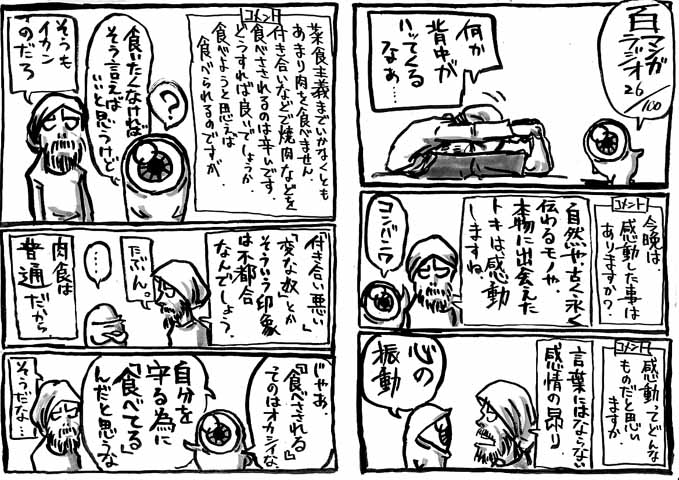 百マンガ
ラジオ
26/100
何か
背中が
ハッてくる
なぁ…
コメント
今晩は。
感動した事は
ありますか？
自然や古く永く
伝わるモノや、
本物に出会えた
トキは感動
しますね。
コンバンワ
コメント
感動ってどんな
ものだと思い
ますか。
言葉にはならない
感情の昂り。
心の
振動
コメント
菜食主義までいかなくとも
あまり肉を食べません。
付き合いなどで焼肉などを
食べさせられるのは辛いです。
どうすれば良いでしょうか
食べようと思えば
食べられるのですが。
？
食いたくなければ
そう言えば
いいと思うけど。
そうも
イカン
のだろ
「付き合い悪い」
「変な奴」とか
そういう印象
は不都合
なんでしょう。
たぶん。
…
肉食は
普通だから
じゃあ、
『食べさせられる』
てのはオカシイな。
自分を
守る為に
『食べてる』
んだと思うな
そうだな…